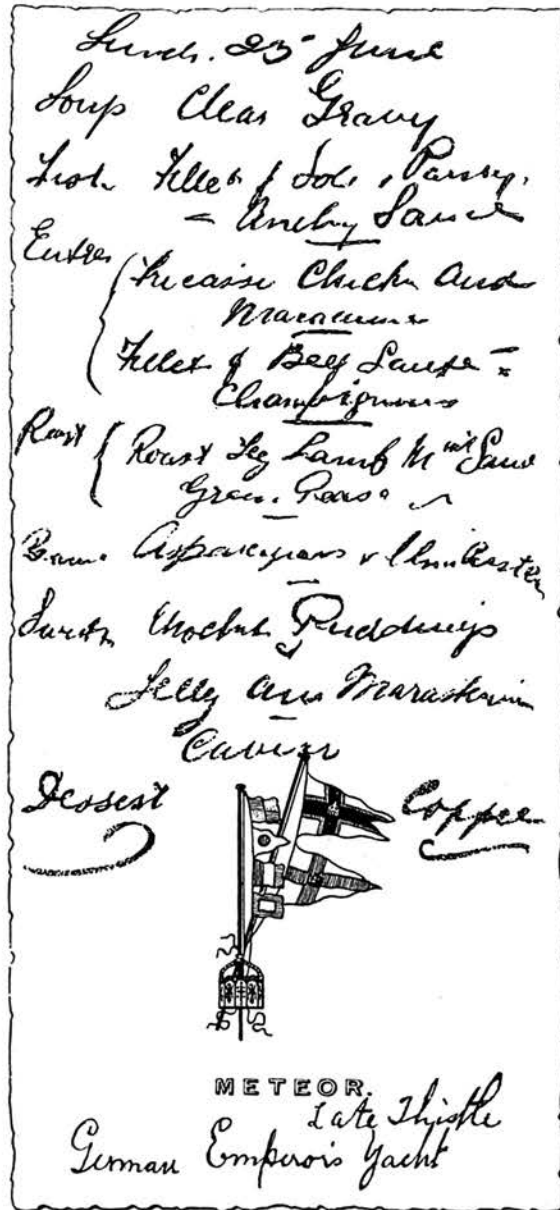 Lunch. 25 June
Soup Clear Gravy
Fish Fillet of Sole, Parsey,
= Anchy Sauce
Entree
Fricasse Chicken And
Fillet of Beef Sauce =
Champignons
Roast Roast Leg Lamb Mint Sauce
Green Peas
Asparagus
Puddings
Jelly Au Maraschin
Caviar
Dessert Coppee
METEOR.
Late Thistle
German Emperois Yacht